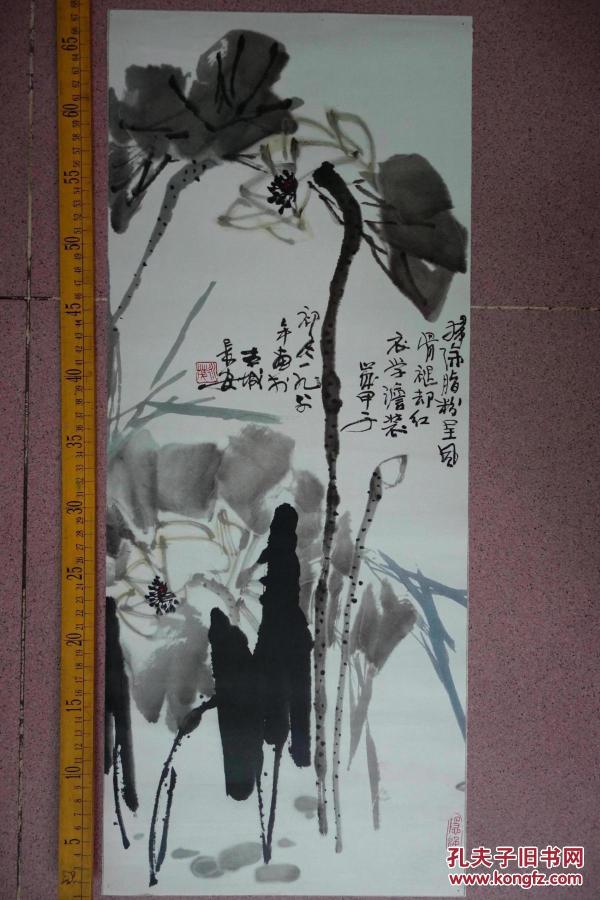 掃除脂粉呈風
骨褪却红
衣学澹装
歲甲子
初冬一九
年画於
古城
長安
65
60
55
50
45
40
35
30
25
20
15
10
5
孔夫子旧书网
www.kongfz.com